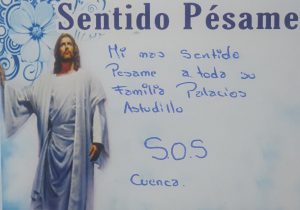 Sentido Pésame
Mi mas sentido
Pesame a toda su
Familia Palacios
Astudillo
S.O.S
Cuenca.